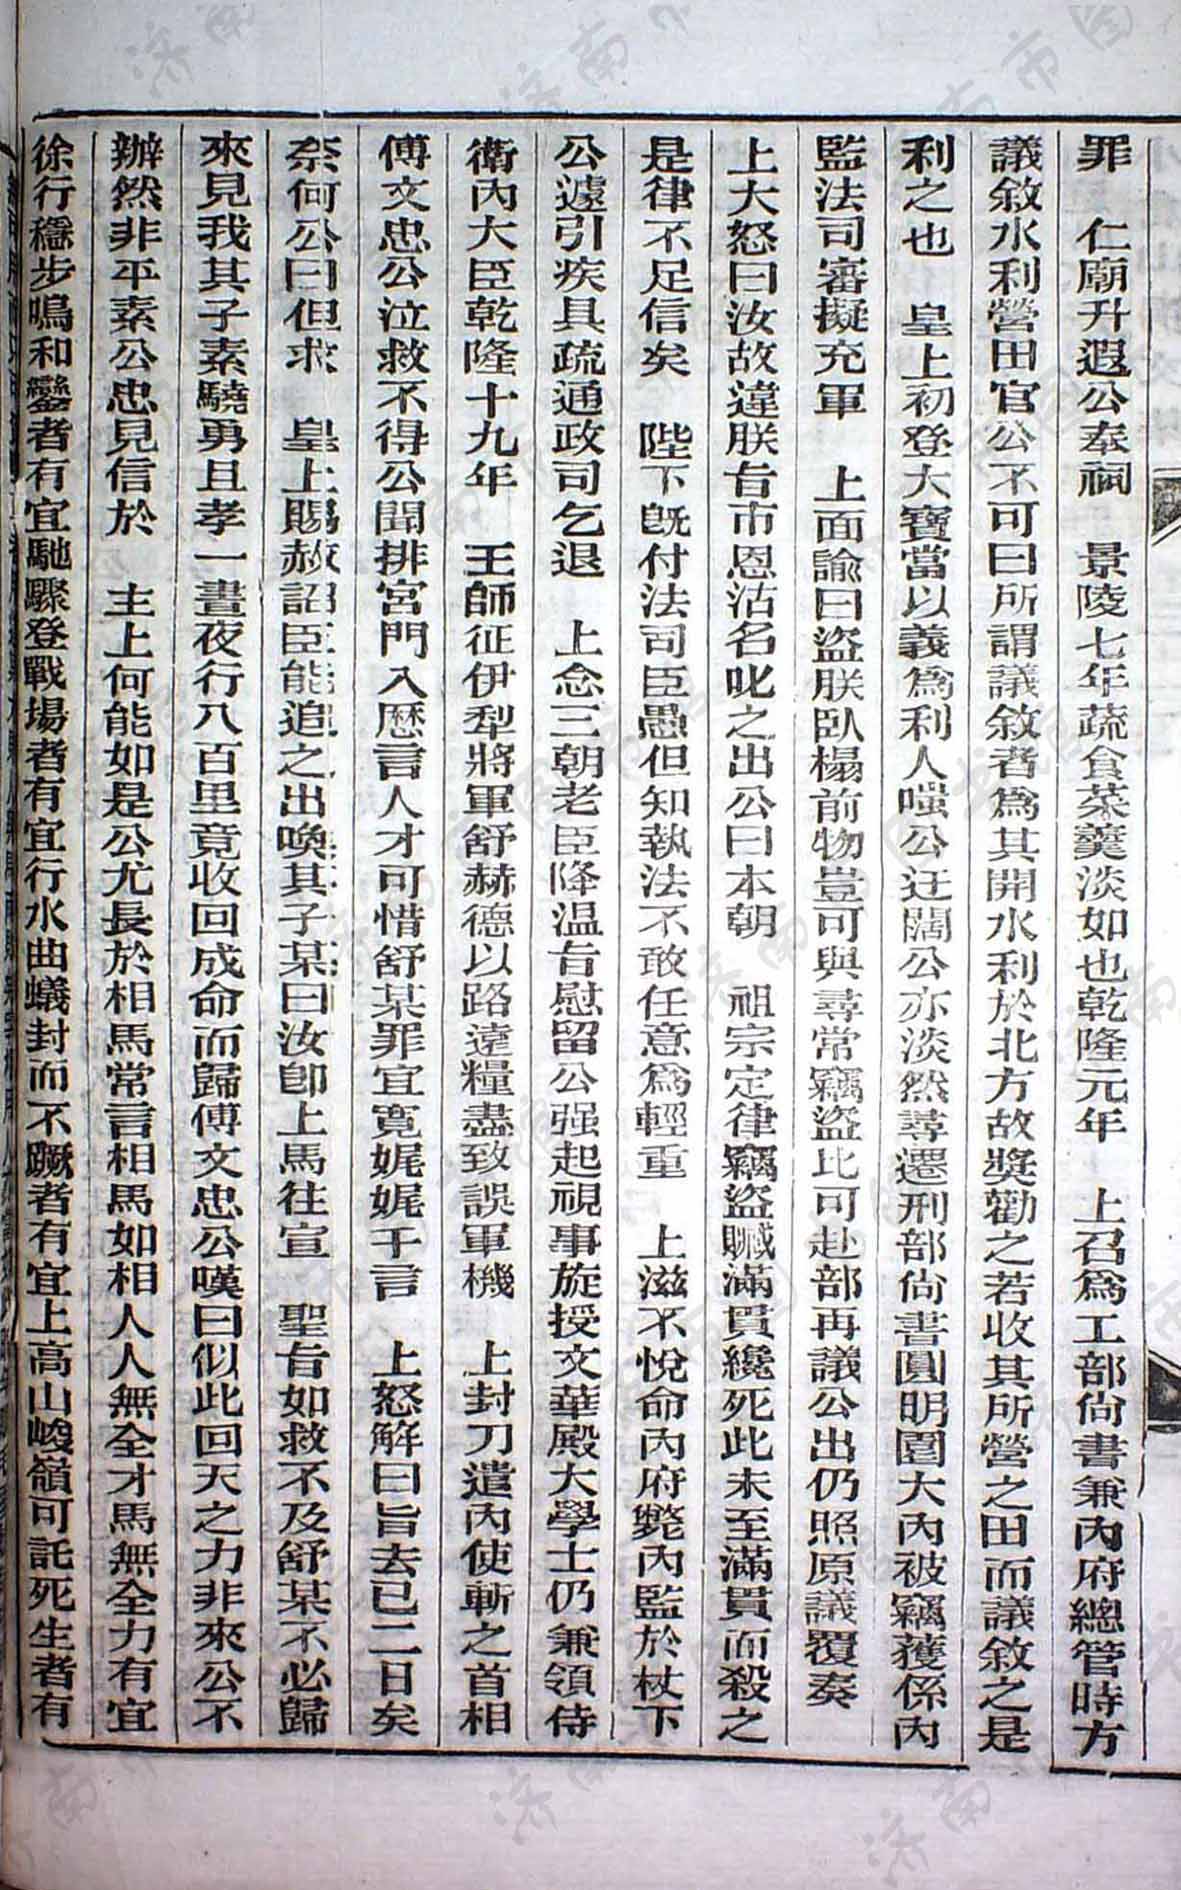 罪　仁廟升遐公奉祠　景陵七年蔬食菜羹淡如也乾隆元年　上召爲工部尙書兼內府總管時方
議敘水利營田官公不可曰所謂議敘者爲其開水利於北方故獎勸之若收其所營之田而議敘之是
利之也　皇上初登大寶當以義爲利人嗤公迂闊公亦淡然尋遷刑部尙書圓明園大內被竊獲係內
監法司審擬充軍　上面諭曰盜朕臥榻前物豈可與尋常竊盜比可赴部再議公出仍照原議覆奏
上大怒曰汝故違朕旨市恩沽名叱之出公曰本朝　祖宗定律竊盜贓滿貫纔死此未至滿貫而殺之
是律不足信矣　陛下旣付法司臣愚但知執法不敢任意爲輕重　上滋不悅命內府斃內監於杖下
公遽引疾具疏通政司乞退　上念三朝老臣降温旨慰留公强起視事旋授文華殿大學士仍兼領侍
衛內大臣乾隆十九年　王師征伊犁將軍舒赫德以路遠糧盡致誤軍機　上封刀遣內使斬之首相
傅文忠公泣救不得公聞排宮門入歷言人才可惜舒某罪宜寬娓娓千言　上怒解曰旨去已二日矣
奈何公曰但求　皇上賜赦詔臣能追之出喚其子某曰汝卽上馬往宣　聖旨如救不及舒某不必歸
來見我其子素驍勇且孝一晝夜行八百里竟收回成命而歸傅文忠公嘆曰似此回天之力非來公不
辦然非平素公忠見信於　主上何能如是公尤長於相馬常言相馬如相人人無全才馬無全力有宜
徐行穩步鳴和鑾者有宜馳驟登戰場者有宜行水曲蟻封而不蹶者有宜上高山峻嶺可託死生者有